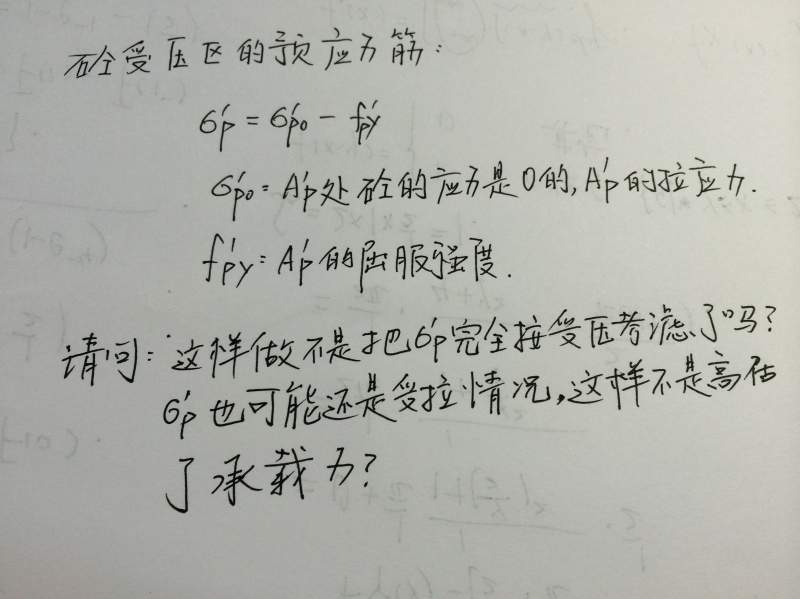 砼受压区的预应力筋:
σ'p = σ'p0 - f'py
σ'p0 = A'p处砼的应力是0的, A'p的拉应力.
f'py = A'p的屈服强度.
请问: 这样做不是把σ'p完全按受压考滤了吗?
σ'p也可能还是受拉情况,这样不是高估
了承载力?